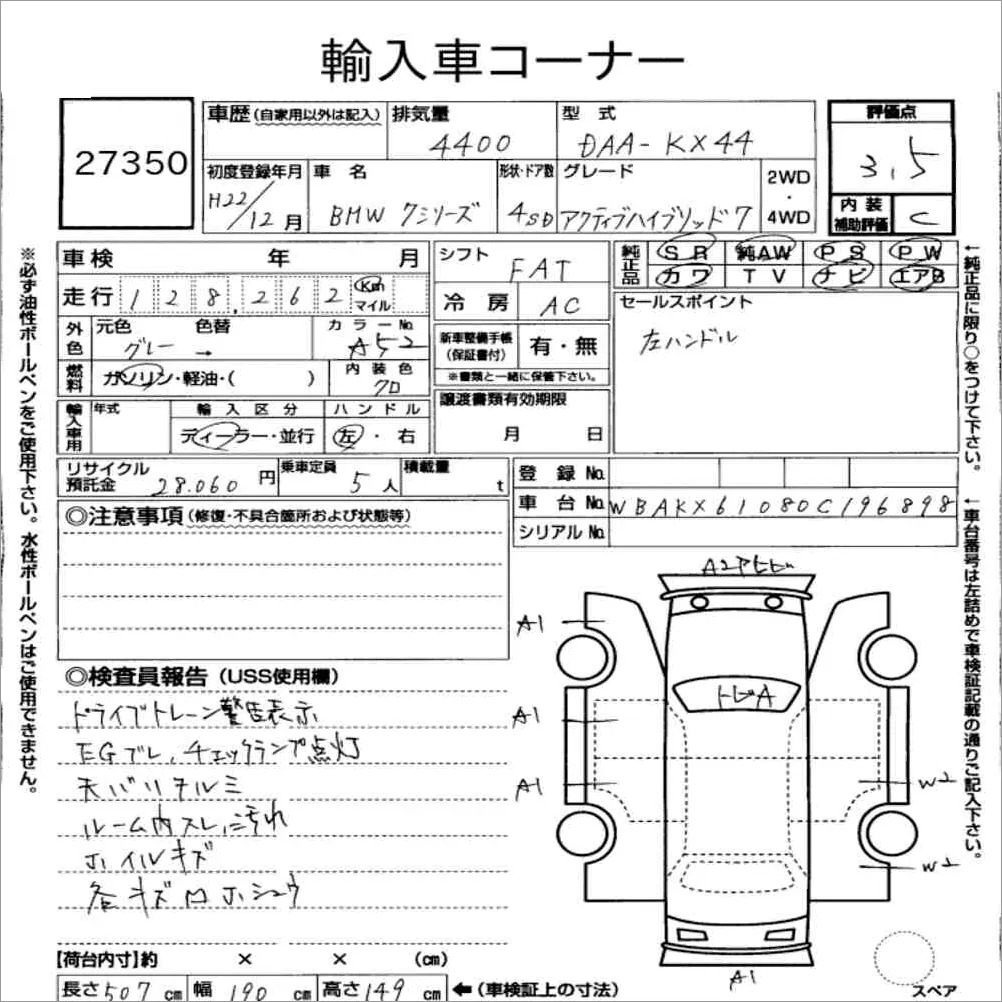 輸入車コーナー
27350
車歴(自家用以外は記入)
排気量
4400
型式
DAA-KX44
評価点
3.5
初度登録年月
H22/12月
車名
BMW 7シリーズ
形状・ドア数
4SD
グレード
アクティブハイブリッド7
2WD
・
4WD
内装
補助評価
C
※必ず油性ボールペンをご使用下さい。水性ボールペンはご使用できません。
車検 年 月
走行 128,262 Km
マイル
外色
元色 色替
グレー →
カラーNo.
A52
燃料
ガソリン・軽油・( )
内装色
クロ
輸入車用
年式
輸入区分
ディーラー・並行
ハンドル
左・右
シフト
FAT
冷房
AC
新車整備手帳
(保証書付)
有・無
※書類と一緒に保管下さい。
譲渡書類有効期限
月 日
純正品
SR 純AW PS PW
カワ TV ナビ エアB
セールスポイント
左ハンドル
←純正品に限り○をつけて下さい。
リサイクル
預託金
28.060 円
乗車定員
5人
積載量
t
登録No.
車台No. WBAKX61080C196898
シリアルNo.
←車台番号は左詰めで車検証記載の通りご記入下さい。
◎注意事項(修復・不具合箇所および状態等)
◎検査員報告(USS使用欄)
ドライブトレーン警告表示
EGブレ、チェックランプ点灯
天バリヨルミ
ルーム内スレ、汚れ
ホイルキズ
各キズロホシュウ
A1
A1
A1
トビA
W2
W2
A1
スペア
【荷台内寸】約 × × (cm)
長さ507cm 幅190cm 高さ149cm ←(車検証上の寸法)